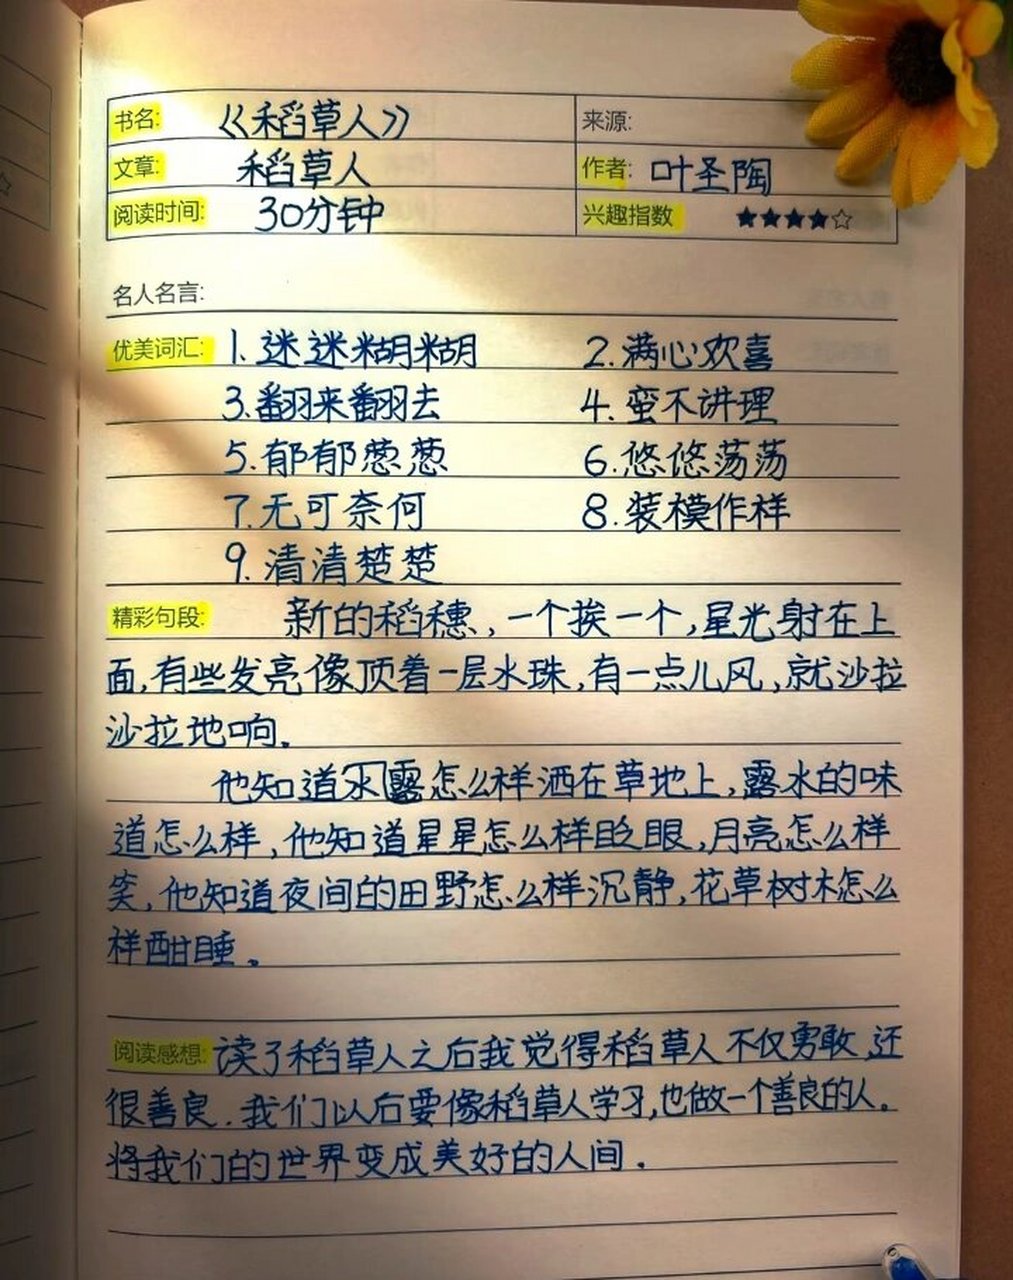 书名: 《稻草人》 来源:
文章: 稻草人 作者: 叶圣陶
阅读时间: 30分钟 兴趣指数 ★★★★☆
名人名言:
优美词汇: 1.迷迷糊糊 2.满心欢喜
3.翻来翻去 4.蛮不讲理
5.郁郁葱葱 6.悠悠荡荡
7.无可奈何 8.装模作样
9.清清楚楚
精彩句段: 新的稻穗,一个挨一个,星光射在上
面,有些发亮像顶着一层水珠,有一点儿风,就沙拉
沙拉地响.
他知道露怎么样洒在草地上,露水的味
道怎么样,他知道星星怎么样眨眼,月亮怎么样
笑,他知道夜间的田野怎么样沉静,花草树木怎么
样酣睡。
阅读感想: 读了稻草人之后我觉得稻草人不仅勇敢,还
很善良.我们以后要像稻草人学习,也做一个善良的人。
将我们的世界变成美好的人间.